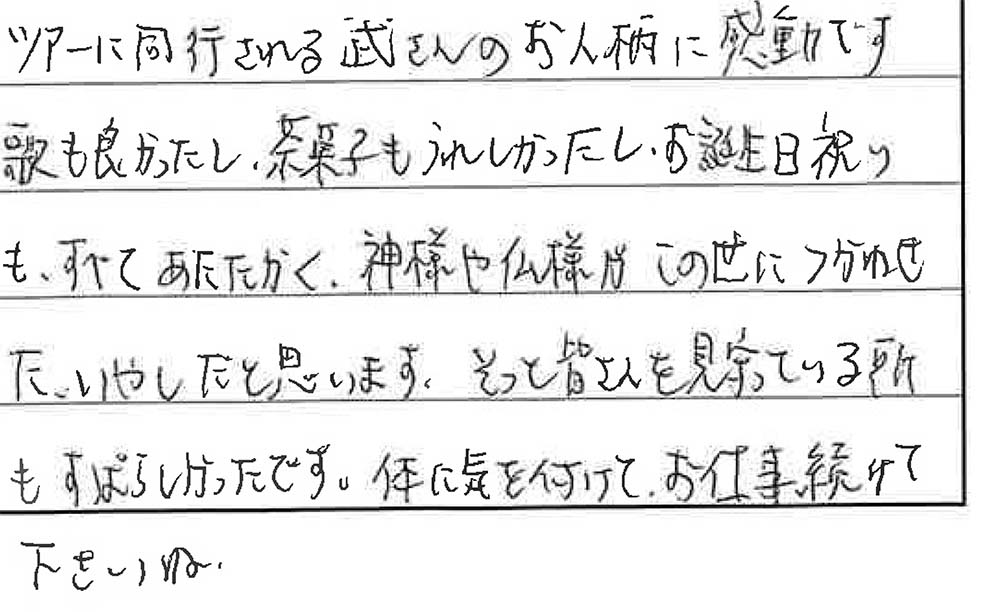 ツアーに同行される武さんのお人柄に感動です
歌も良かったし、茶菓子もうれしかったし、お誕生日祝い
も、すべてあたたかく、神様や仏様が この世につかわせ
た、いやしだと思います。そっと皆さんを見守っている所
もすばらしかったです。体に気を付けて、お仕事続けて
下さいね。